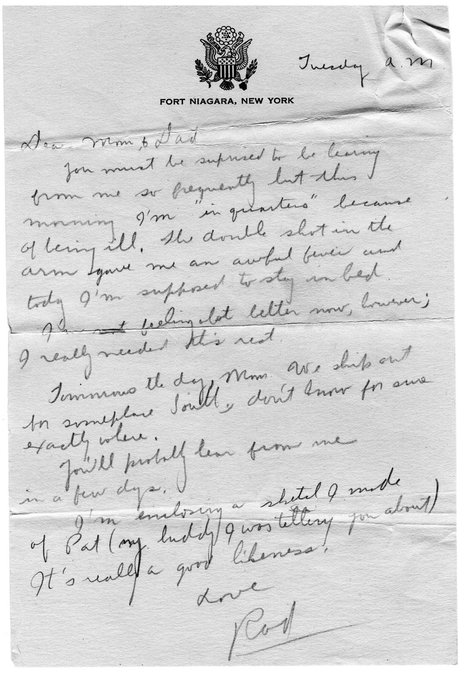 Tuesday a.m
FORT NIAGARA, NEW YORK
Dear Mom & Dad
You must be suprised to be hearing
from me so frequently but this
morning I'm "in quarters" because
of being ill. The double shot in the
arm gave me an awful fever and
today I'm supposed to stay in bed.
I'm feeling a lot better now, however;
I really needed this rest.
Tommorows the day, Mom. We ship out
for someplace South, don't know for sure
exactly where.
You'll probably hear from me
in a few days.
I'm enclosing a sketch I made
of Pat (my buddy I was telling you about)
It's really a good likeness.
Love
Rod